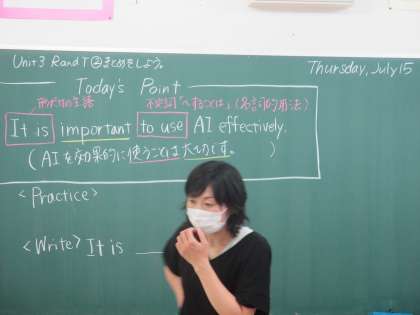 Unit 3 R and T②まとめをしよう。
Thursday, July 15
Today's Point
形だけの主語 不定詞「〜することは」(名詞的用法)
It is important to use AI effectively.
(AIを効果的に使うことは大切です。)
<Practice>
<Write> It is